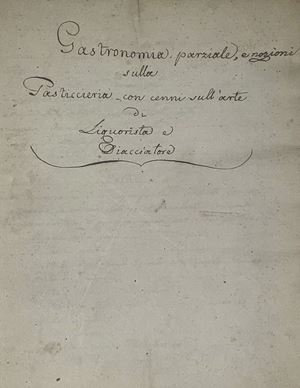 Gastronomia parziale, e nozioni
sulla
Pasticcieria con cenni sull'arte
di
Liquorista e
Diacciatore